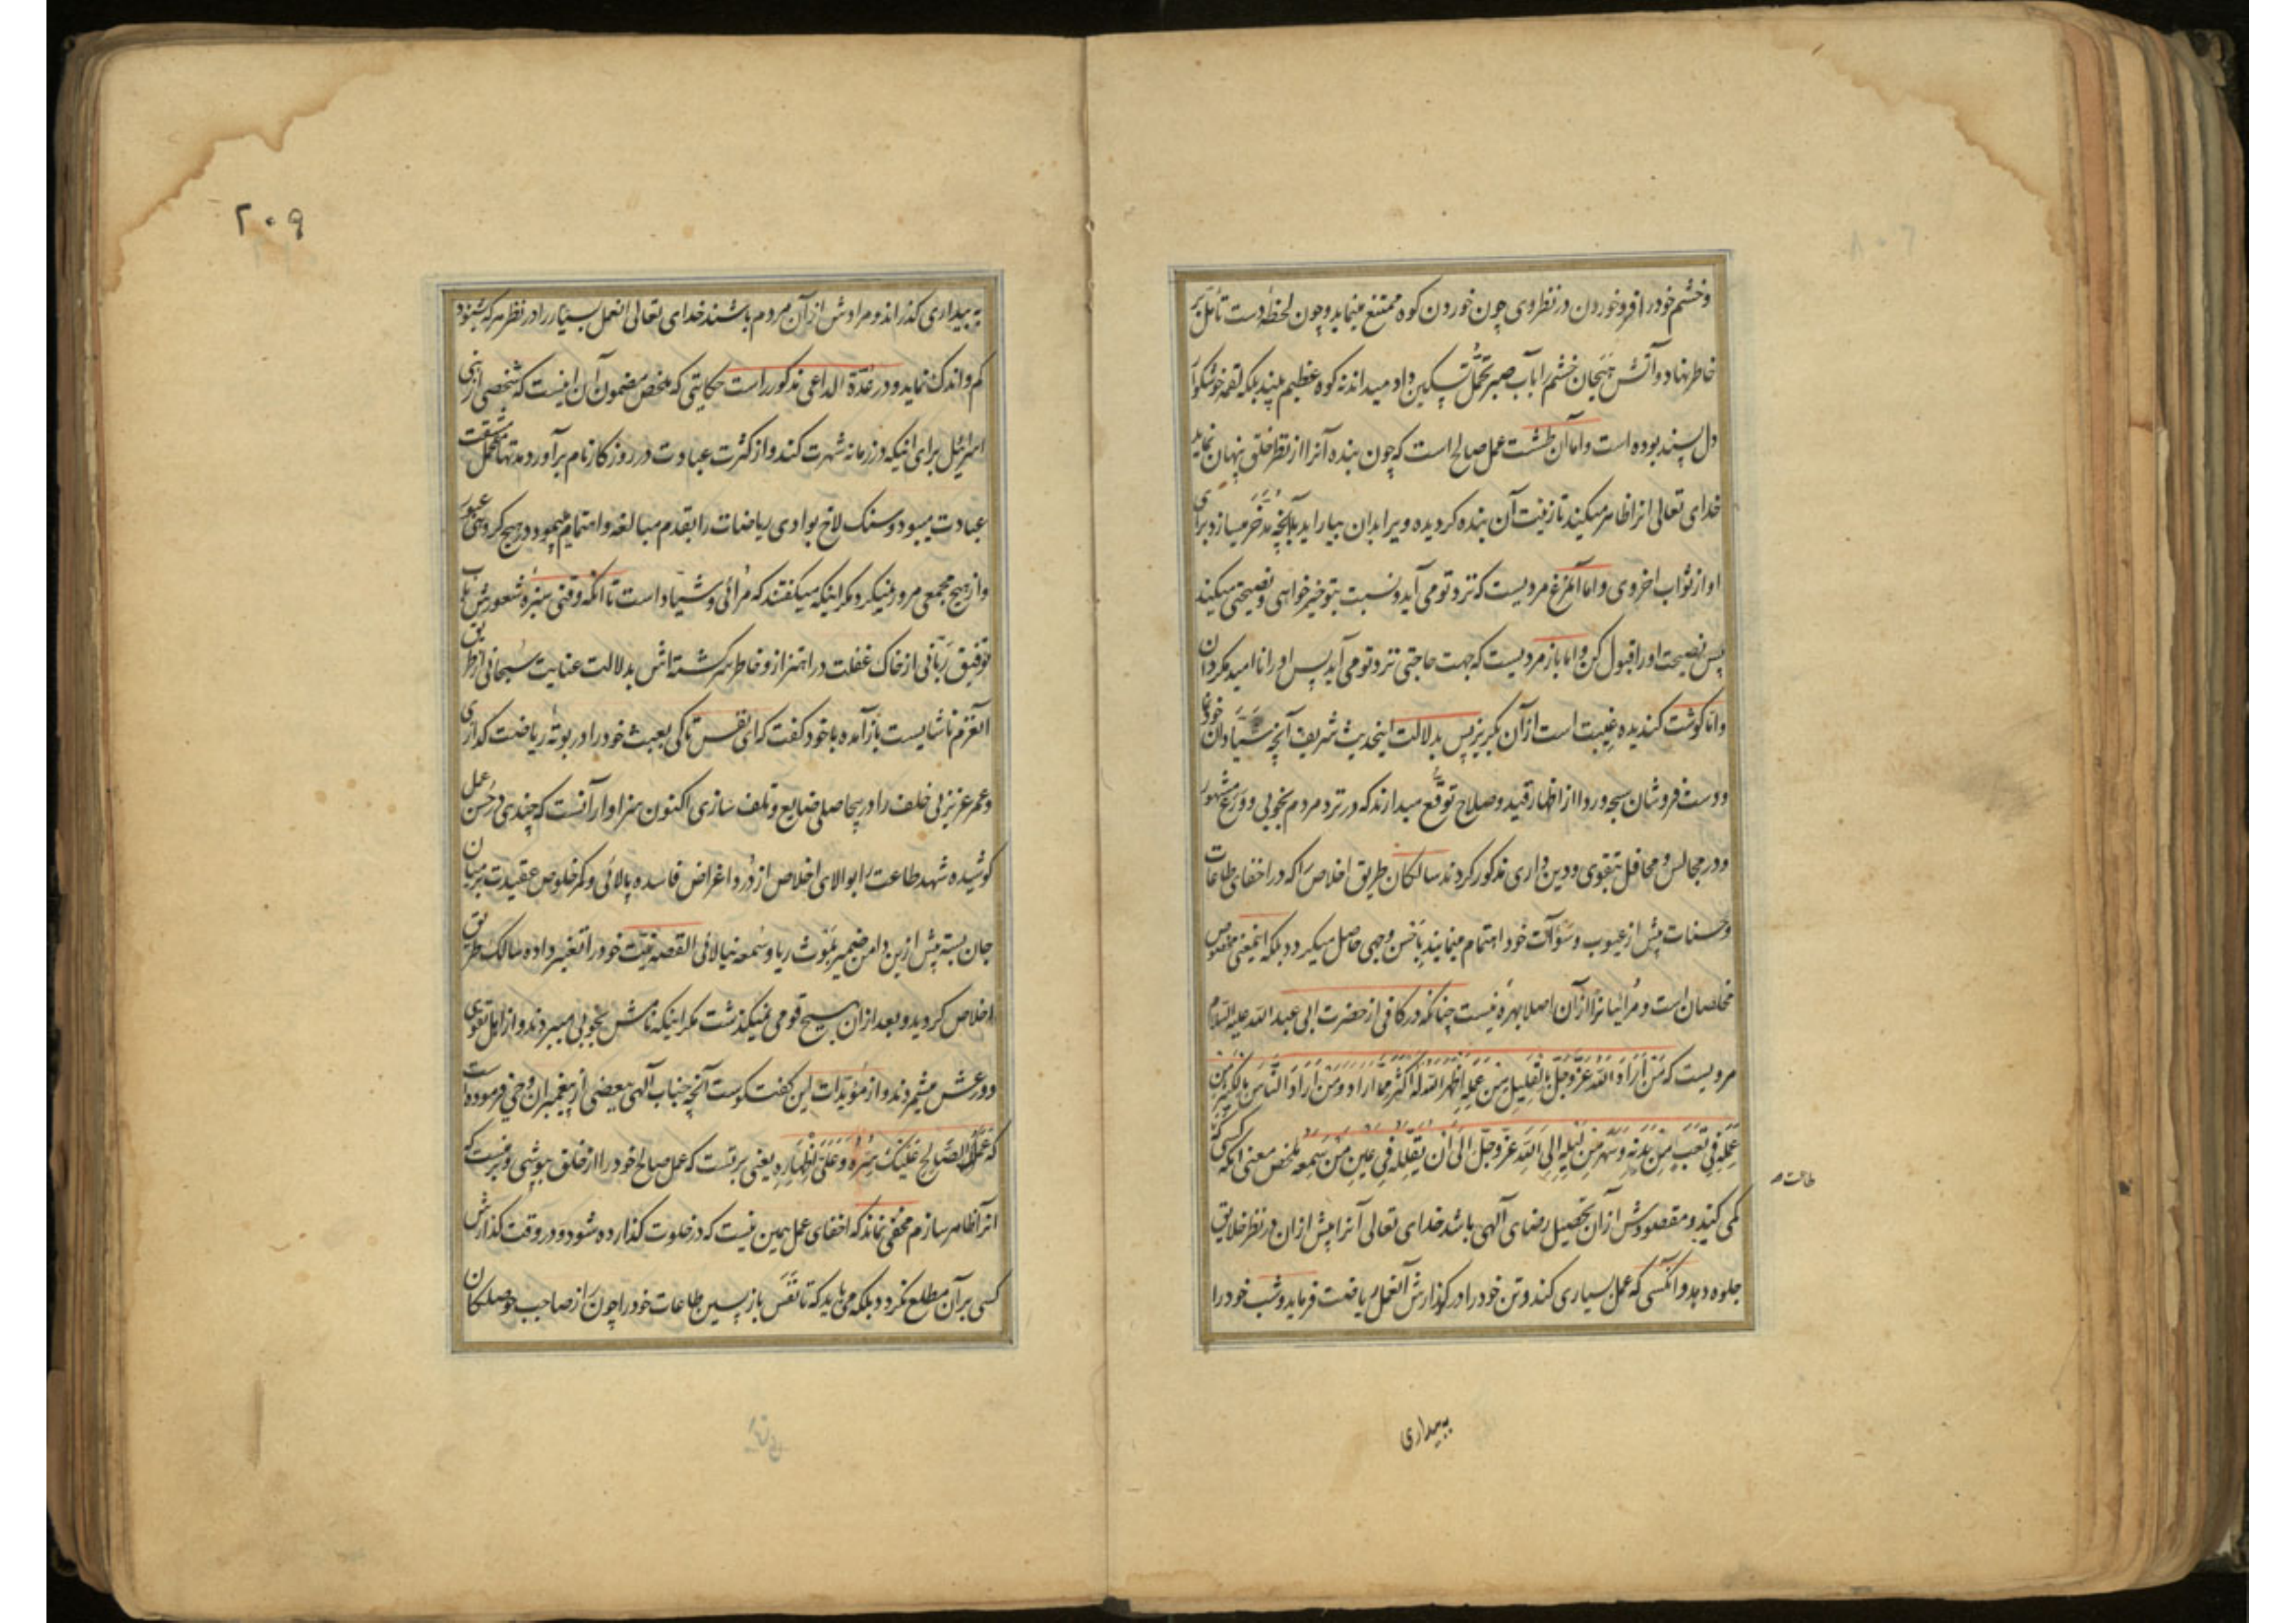 و خشم خود را فرو خوردن در نظر وی چون خوردن کوه ممتنع مینماید و چون لحظهٔ دست تأمل بر
خاطر نهاد و آتش هیجان خشم را بآب صبر و تحمل تسکین داد میداند نه کوه عظیم بلند بلکه لقمه خوشگوار
دل پسند بوده است و اما آن طشت عمل صالح است که چون بنده آنرا از نظر خلق پنهان نماید
خدای تعالی انرا ظاهر میکند تا زینت آن بنده کردیده ویرا بدان بیاراید با آنچه مدّخر میسازد برای
او از ثواب اخروی و اما آنمرغ مردیست که نزد تو می آید و نسبت بتو خیرخواهی و نصیحتی میکند
پس نصیحت او را قبول کن و اما باز مردیست که جهت حاجتی نزد تو می آید پس او را ناامید مکردان
و اما کوشت کندیده غیبت است از آن بکریز پس بدلالت اینحدیث شریف آنچه شیّادان خودنما
و دست فروشان سبحه و ردا از اظهار قید و صلاح توقّع میدارند که در نزد مردم بخوبی و ورع مشهور
و در مجالس و محافل بتقوی و دین داری مذکور کردند سالکان طریق اخلاص را که در اخفای طاعات
و حسنات پیش از عیوب و سوآت خود اهتمام مینمایند باحسن وجهی حاصل میکردد بلکه اینمعنی مخصوص
مخلصان است و مُرائیانرا از آن اصلا بهرهٔ نیست چنانکه در کافی از حضرت ابی عبد الله علیه السلام
مرویست که مَنْ اَرَادَ اللهَ عَزَّ وَجَلَّ بِالْقَلِیلِ مِنْ عَمَلِهِ اَظْهَرَ اللهُ لَهُ اَکْثَرَ مِمَّا اَرَادَ وَ مَنْ اَرَادَ النَّاسَ بِالْکَثِیرِ مِنْ
عَمَلِهِ فِی تَعَبٍ مِنْ بَدَنِهِ وَ سَهَرٍ مِنْ لَیْلِهِ اَبَی اللهُ عَزَّ وَجَلَّ اِلَّا اَنْ یُقَلِّلَهُ فِی عَیْنِ مَنْ سَمِعَهُ ملخص معنی آنکه کسی که
طاعت
کمی کند و مقصودش از آن تحصیل رضای آلهی باشد خدای تعالی آنرا پیش از آن در نظر خلایق
جلوه دهد و آنکسی که عمل بسیاری کند و تن خود را در گذارش آنعمل ریاضت فرماید و شب خود را
ببیداری
۲۰۹
به بیداری گذراند و مرادش از آن مردم باشند خدای تعالی انعمل بسیار را در نظر هر که شنود
کم و اندک نماید و در عُدّة الداعی مذکور است حکایتی که ملخص مضمون آن اینست که شخصی از بنی
اسرائیل برای اینکه در زمانه شهرت کند و از کثرت عبادت در روزکار نام برآورد مدتها تحمل مشقت
عبادت مینمود و سنک لاخ بوادی ریاضات را بقدم مبالغه و اهتمام می پیمود و در هیچ کروهی عبور
و از هیچ مجمعی مرور نمیکرد مکر اینکه میکفتند که مُرائی و شیّاد است تا آنکه وقتی سبزهٔ شعورش بآب
توفیق ربّانی از خاک غفلت در اهتزاز و خاطر سرکشته اش بدلالت عنایت سبحانی از طریق
آنعزم ناشایست باز آمده با خود کفت که ای نفس تا کی بعبث خود را در بوتهٔ ریاضت کدازی
و عمر عزیز بی خلف را در بیحاصلی ضایع و تلف سازی اکنون سزاوار آنست که چندی در حُسن عمل
کوشیده شهد طاعت را بوالای اخلاص از دُرد اغراض فاسده پالائی و کمر خلوص عقیدت بر میان
جان بسته پیش ازین دامن ضمیر بلوث ریا و سُمعه نیالائی القصه نیّت خود را تغییر داده سالک طریق
اخلاص کردید و بعد از ان بهیچ قومی نمیکذشت مکر اینکه نامش بخوبی میبردند و از اهل تقوی
و ورعش میشمردند و از مؤیّدات این کفتکوست آنچه جناب آلهی ببعضی از پیغمبران وحی فرموده است
که عَمَلُکَ الصَّالِحُ عَلَیْکَ سِتْرُهُ وَ عَلَیَّ اِظْهَارُهُ یعنی بر تست که عمل صالح خود را از خلق بپوشی و بر منست که
انرا ظاهر سازم مخفی نماند که اخفای عمل همین نیست که در خلوت کذارده شود و در وقت کذارش
کسی بر آن مطلع نکردد بلکه می باید که تا نفَس بازپسین طاعات خود را چون راز صاحب حوصلکان